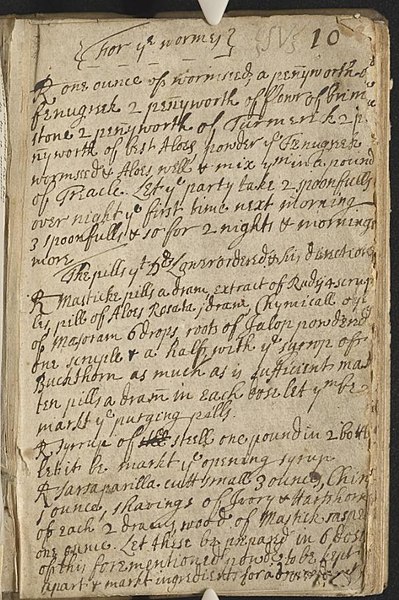 {For yᵉ wormes} 10
℞ one ounce of wormseed, a penyworth of
fenugrek 2 penyworth of flowr of brim
stone 2 penyworth of Turmerik 2 p
nyworth of best Aloes powder yᵉ Fenugrek
wormseed & Aloes well & mix yᵐ in a pound
of Triacle. Let yᵉ party take 2 spoonfulls
over night yᵉ first time next morning
3 spoonfulls & so for 2 nights & mornings
more
The pills yᵗ Dʳ ordered & his directions
℞ Masticke pills a dram, extract of Rudy 4 scrup
les, pill of Aloes Rosata, 1 dram Chymicall oyl
of Majoram 6 drops, roots of Jalop powdered
one scruple & a half, with yᵉ syrop of
Buckthorn as much as is sufficient, mak
ten pills a dram in each dose let yᵐ be
markt yᵉ purging pills.
℞ syrrup of steell one pound in 2 bottl
let it be markt yᵉ opening syrup
℞ Sarsaparilla cutt small 3 ounces, Chin
ounce, shavings of Ivory & Hartshorn
of each 2 drams, wood of Mastick rasped
one ounce. Let these be prepared in 6 dose
of this forementioned powder to be kept
apart & markt ingredients for a